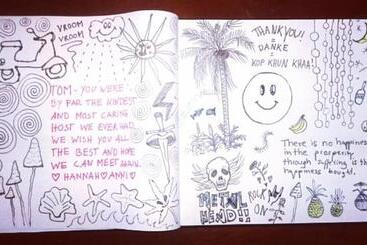 VROOM
VROOM
TOM - YOU WERE
BY FAR THE KINDEST
AND MOST CARING
HOST WE EVER HAD.
WE WISH YOU ALL
THE BEST AND HOPE
WE CAN MEET AGAIN.
♡ HANNAH ♡ ANNI ♡
THANKYOU!
=
DANKE
=
KOP KHUN KHAA!
There is no happiness
in the prosperity,
through suffering is the
happiness bought.
METAL
HEAD!!
ROCK
ON